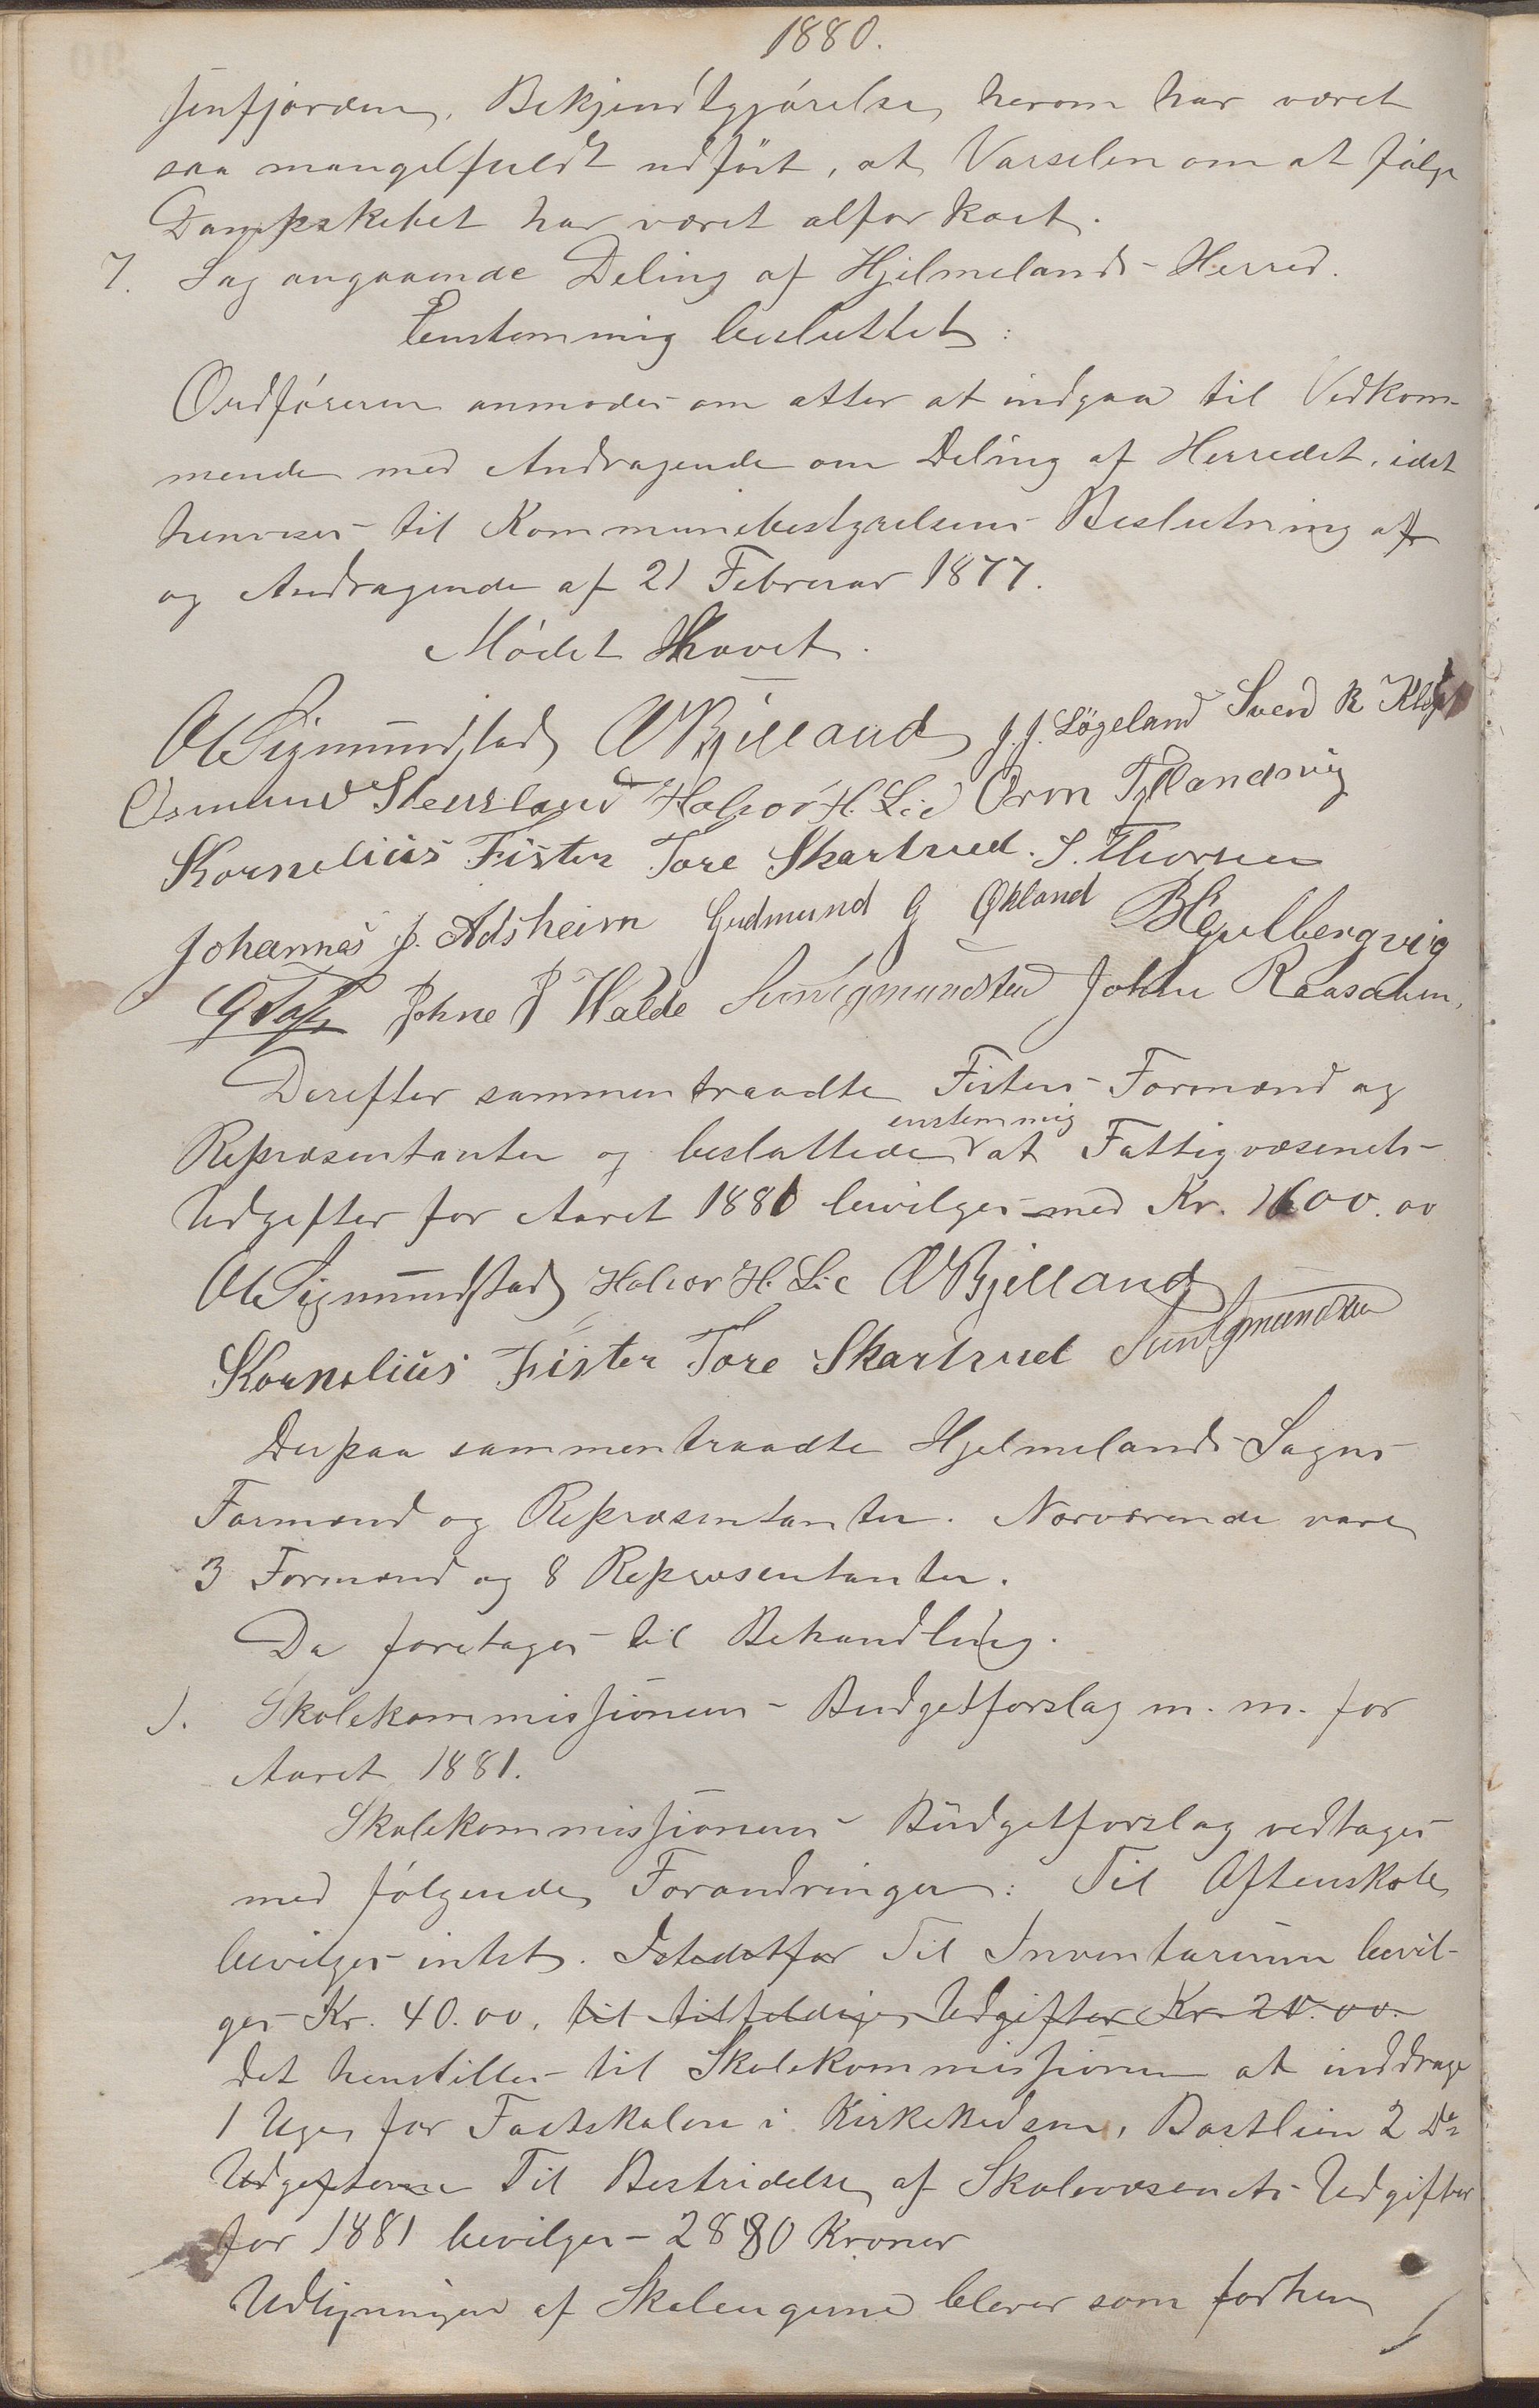 1880.
senfjorden, Bekjendtgjørelse herom har været
saa mangelfuldt udført, at Varselen om at følge
Dampskibet har været alfor kort.
7. Sag angaaende Deling af Hjelmelands Herred.
Eenstemmig besluttet:
Ordføreren anmodes om atter at indgaa til Vedkom-
mende med Andragende om Deling af Herredet, idet
henvises til Kommunebestyrelsens Beslutning af
og Andragende af 21 Februar 1877.
Mødet Hævet.
O Sigmundstad O Bjelland J. J. Løgeland Svend R
Osmund Steensland Halvor H. Lie Orm Tytlandsvig
Kornelius Fister Tore Skartved. S. Thorsen
Johannes J. Adsheim Gudmund G Økland B Heulbergvig
Johne J Walde Sigmundstad John Raasdauen,
Derefter sammentraadte Fisters Formænd og
enstemmig
Repræsentanter og besluttede at Fattigvæsenets
Udgifter for Aaret 1881 bevilges med Kr. 1600.00
O Sigmundstad Halvor H. Lie O Bjelland
Kornelius Fister Tore Skartved Sigmundstad
Derpaa sammentraadte Hjelmelands Sogns
Formænd og Repræsentanter. Nærværende vare
3 Formænd og 8 Repræsentanter.
Da foretages til Behandling.
1. Skolekommissionens Budgetforslag m. m. for
Aaret 1881.
Skolekommissionens Budgetforslag vedtages
med følgende Forandringer: Til Aftenskole
bevilges intet. Istedetfor Til Inventarium bevil-
ges Kr. 40.00, til tilfeldige Udgifter Kr 20.00.
Det henstilles til Skolekommissionen at inddrage
1 Uge for Fastskolen i Kirkekredsen, Bastlien 2 Do
Udgifterne Til Bestridelse af Skolevæsenets Udgifter
for 1881 bevilges 2880 Kroner
Udligningen af Skoleugerne bliver som forhen